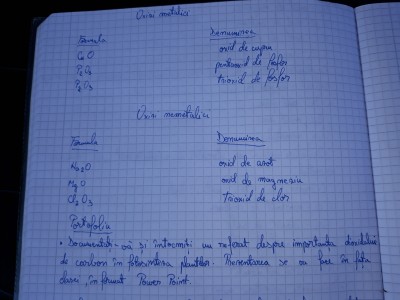 Oxizi metalici
Formula Denumirea
CuO oxid de cupru
P2O5 pentaoxid de fosfor
P2O3 trioxid de fosfor
Oxizi nemetalici
Formula Denumirea
Na2O oxid de azot
MgO oxid de magneziu
Cl2O3 Trioxid de clor
Portofoliu
• Documentati-vă și întocmiti un referat despre importanta dioxidului
de carbon în fotosinteza plantelor. Prezentarea se va face în fața
clasei, în format Power Point.